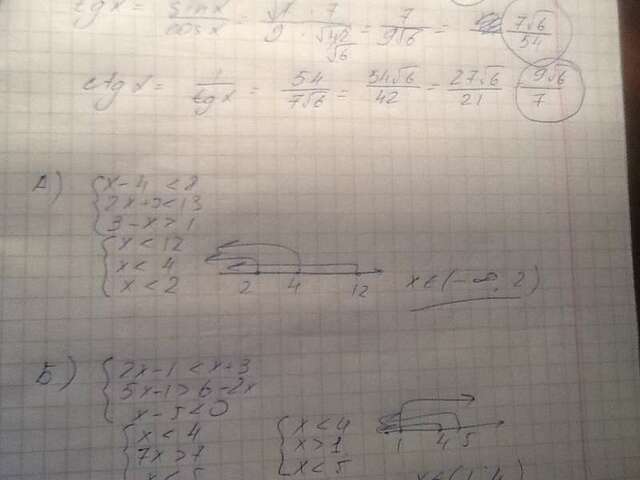 tg x = sin x / cos x = √1 · 7 / 9 · √42 √6 = 7 / 9√6 = 7√6 / 54
ctg x = 1 / tg x = 54 / 7√6 = 54√6 / 42 = 27√6 / 21 = 9√6 / 7
А) { x - 4 < 8
2x + 5 < 13
3 - x > 1
{ x < 12
x < 4
x < 2
2 4 12
x ∈ (-∞, 2)
Б) { 2x - 1 < x + 3
5x - 1 > 6 - 2x
x - 5 < 0
{ x < 4
7x > 7
x < 5
{ x < 4
x > 1
x < 5
1 4 5
x ∈ (1; 4)